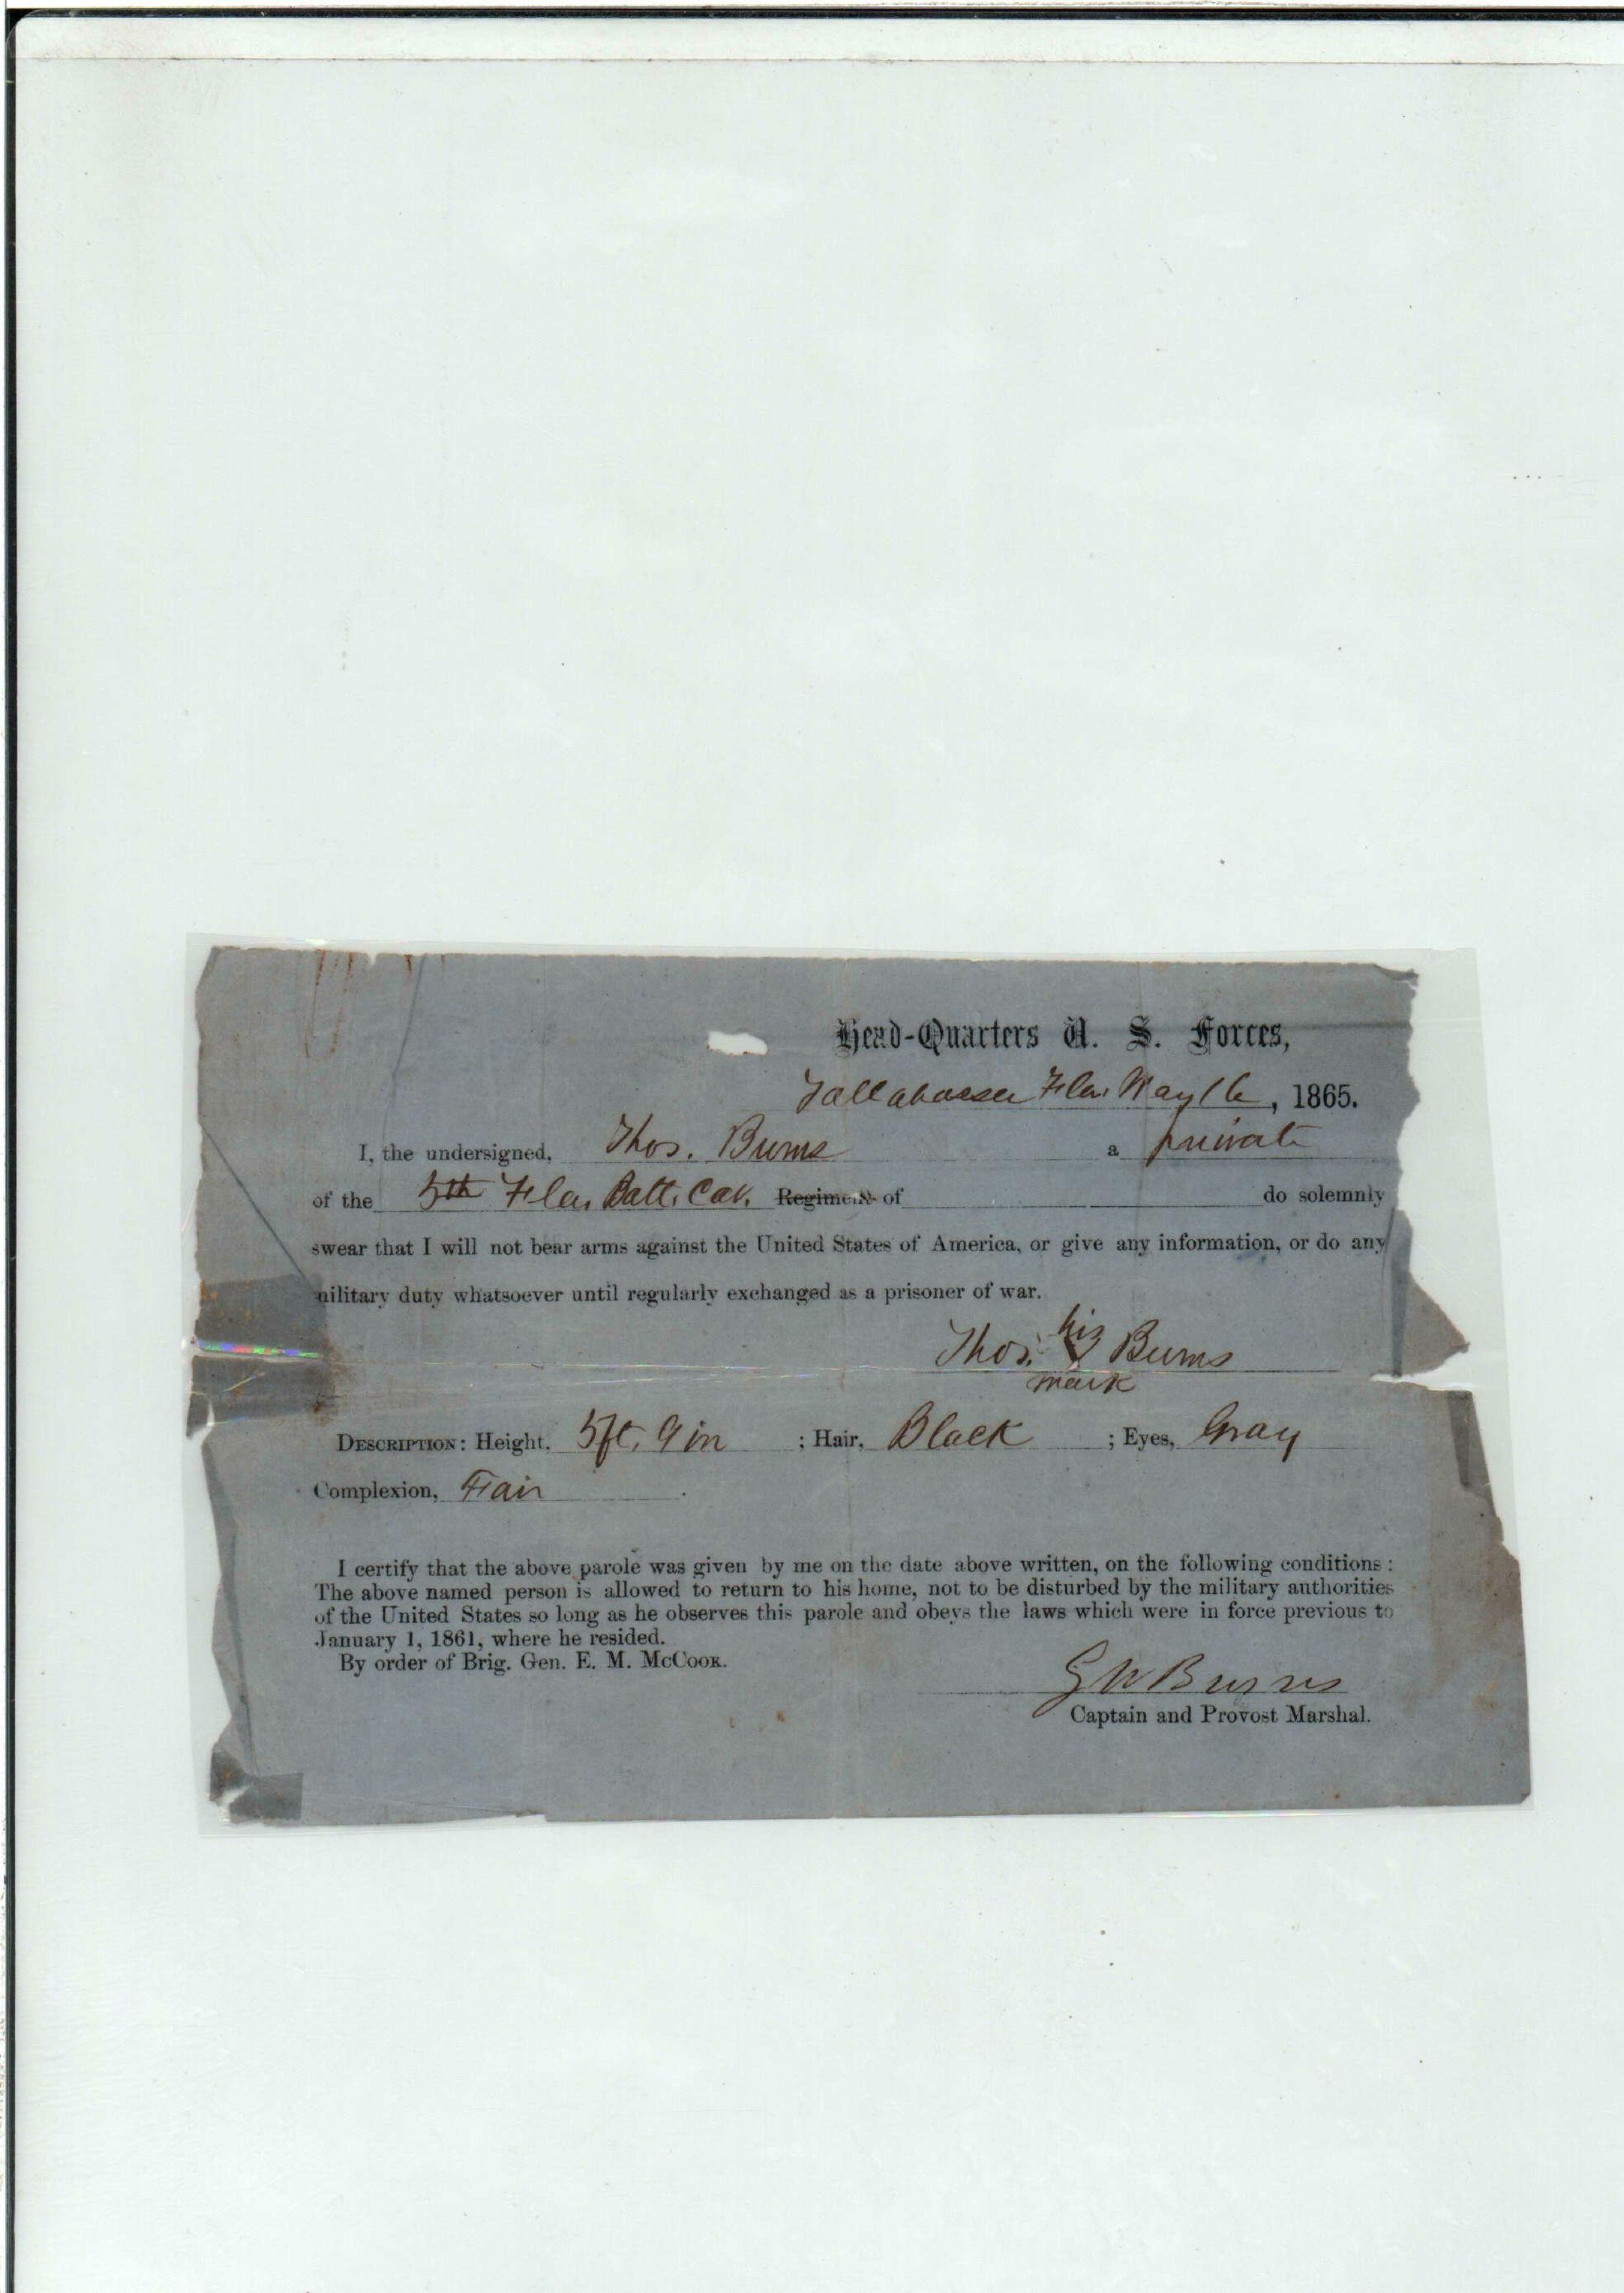 Head-Quarters U. S. Forces,
Tallahassee Fla. May 16, 1865.
I, the undersigned, Thos. Burns a private
of the 5th Fla. Batt. Cav. Regiment of do solemnly
swear that I will not bear arms against the United States of America, or give any information, or do any
military duty whatsoever until regularly exchanged as a prisoner of war.
his
Thos. X Burns
mark
DESCRIPTION: Height, 5ft, 9 in ; Hair, Black ; Eyes, Gray
Complexion, Fair .
I certify that the above parole was given by me on the date above written, on the following conditions :
The above named person is allowed to return to his home, not to be disturbed by the military authorities
of the United States so long as he observes this parole and obeys the laws which were in force previous to
January 1, 1861, where he resided.
By order of Brig. Gen. E. M. McCOOK.
G W Burns
Captain and Provost Marshal.